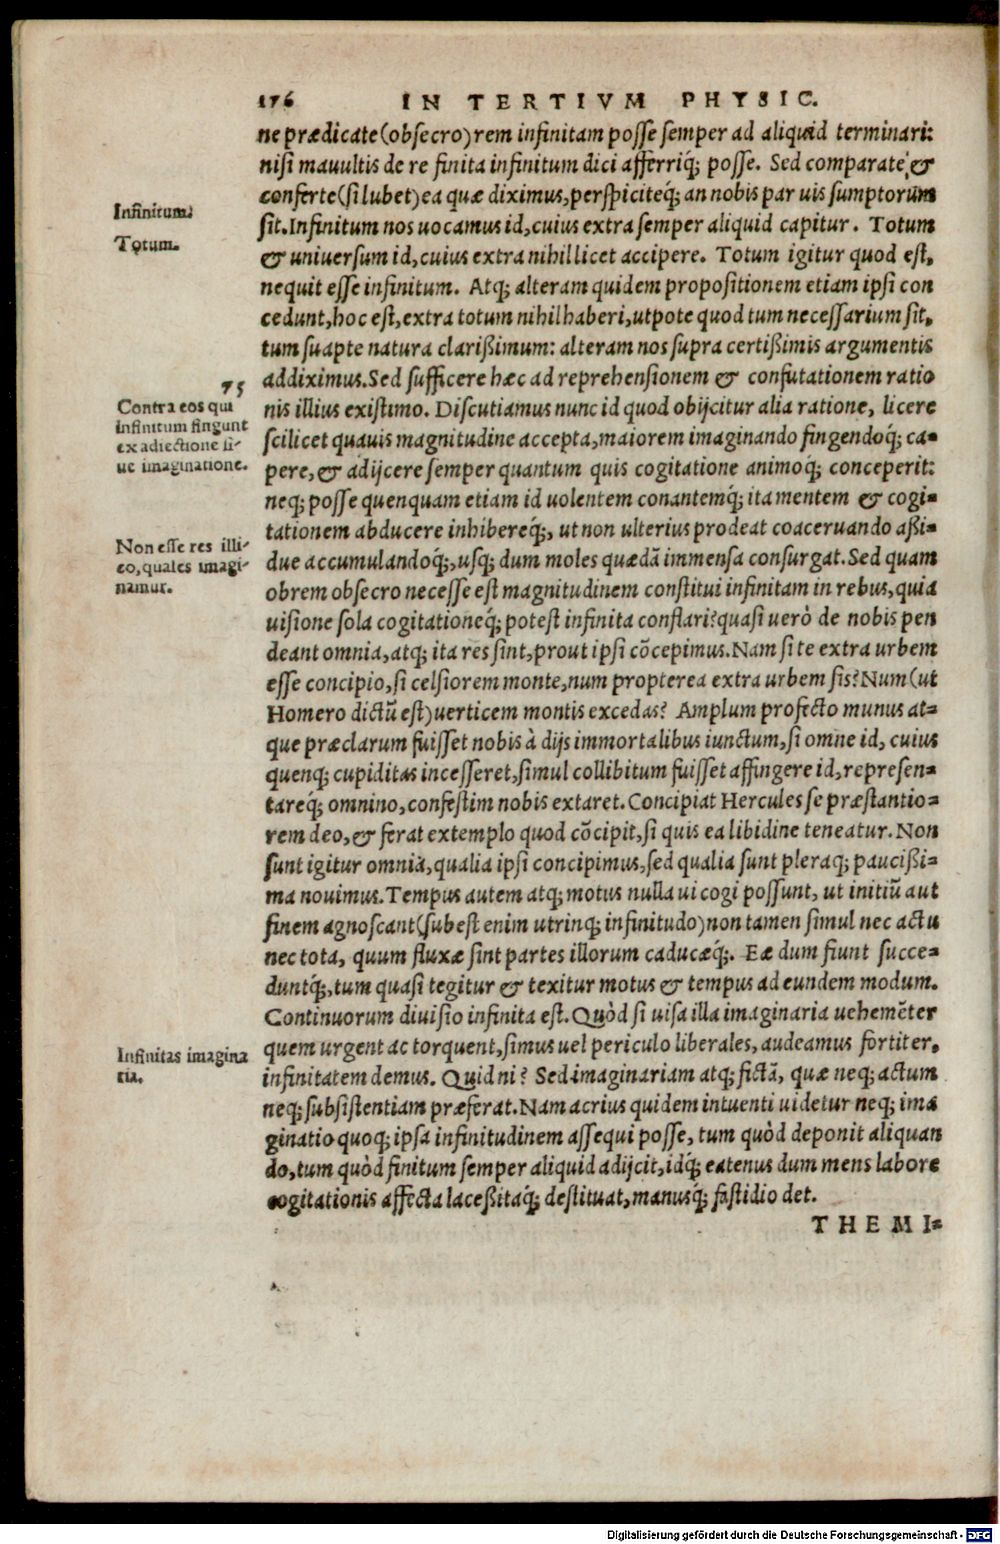 176 IN TERTIVM PHYSIC.
ne prædicate (obsecro) rem infinitam posse semper ad aliquid terminari:
nisi mauultis de re finita infinitum dici afferriq; posse. Sed comparate, &
conferte (si lubet) ea quæ diximus, perspiciteq; an nobis par uis sumptorum
Infinitum.
sit. Infinitum nos uocamus id, cuius extra semper aliquid capitur. Totum
Totum.
& uniuersum id, cuius extra nihil licet accipere. Totum igitur quod est,
nequit esse infinitum. Atq; alteram quidem propositionem etiam ipsi con
cedunt, hoc est, extra totum nihil haberi, utpote quod tum necessarium sit,
tum suapte natura clarißimum: alteram nos supra certißimis argumentis
75
addiximus. Sed sufficere hæc ad reprehensionem & confutationem ratio
Contra eos qui
infinitum fingunt
ex adiectione si-
ue imaginatione.
nis illius existimo. Discutiamus nunc id quod obijcitur alia ratione, licere
scilicet quauis magnitudine accepta, maiorem imaginando fingendoq́; ca-
pere, & adijcere semper quantum quis cogitatione animoq́; conceperit:
neq; posse quenquam etiam id uolentem conantemq́; ita mentem & cogi-
tationem abducere inhibereq́;, ut non ulterius prodeat coaceruando aßi-
Non esse res illi-
co, quales imagi-
namur.
due accumulandoq́;, usq; dum moles quædã immensa consurgat. Sed quam
obrem obsecro necesse est magnitudinem constitui infinitam in rebus, quia
uisione sola cogitationeq́; potest infinita conflari? quasi uerò de nobis pen
deant omnia, atq; ita res sint, prout ipsi cõcepimus. Nam si te extra urbem
esse concipio, si celsiorem monte, num propterea extra urbem sis? Num (ut
Homero dictũ est) uerticem montis excedas? Amplum profecto munus at-
que præclarum fuisset nobis à dijs immortalibus iunctum, si omne id, cuius
quenq; cupiditas incesseret, simul collibitum fuisset affingere id, represen-
tareq; omnino, confestim nobis extaret. Concipiat Hercules se præstantio-
rem deo, & ferat extemplo quod cõcipit, si quis ea libidine teneatur. Non
sunt igitur omnia, qualia ipsi concipimus, sed qualia sunt pleraq; paucißi-
ma nouimus. Tempus autem atq; motus nulla ui cogi possunt, ut initiũ aut
finem agnoscant (subest enim utrinq; infinitudo) non tamen simul nec actu
nec tota, quum fluxæ sint partes illorum caducæq́;. Eæ dum fiunt succe-
duntq́;, tum quasi tegitur & texitur motus & tempus ad eundem modum.
Continuorum diuisio infinita est. Quòd si uisa illa imaginaria uehemẽter
Infinitas imagina
ria.
quem urgent ac torquent, simus uel periculo liberales, audeamus fortiter,
infinitatem demus. Quid ni? Sed imaginariam atq; fictã, quæ neq; actum
neq; subsistentiam præferat. Nam acrius quidem intuenti uidetur neq; ima
ginatio quoq; ipsa infinitudinem assequi posse, tum quòd deponit aliquan
do, tum quòd finitum semper aliquid adijcit, idq́; eatenus dum mens labore
cogitationis affecta laceßitaq́; destituat, manusq́; fastidio det.
THEMI-
Digitalisierung gefördert durch die Deutsche Forschungsgemeinschaft - DFG